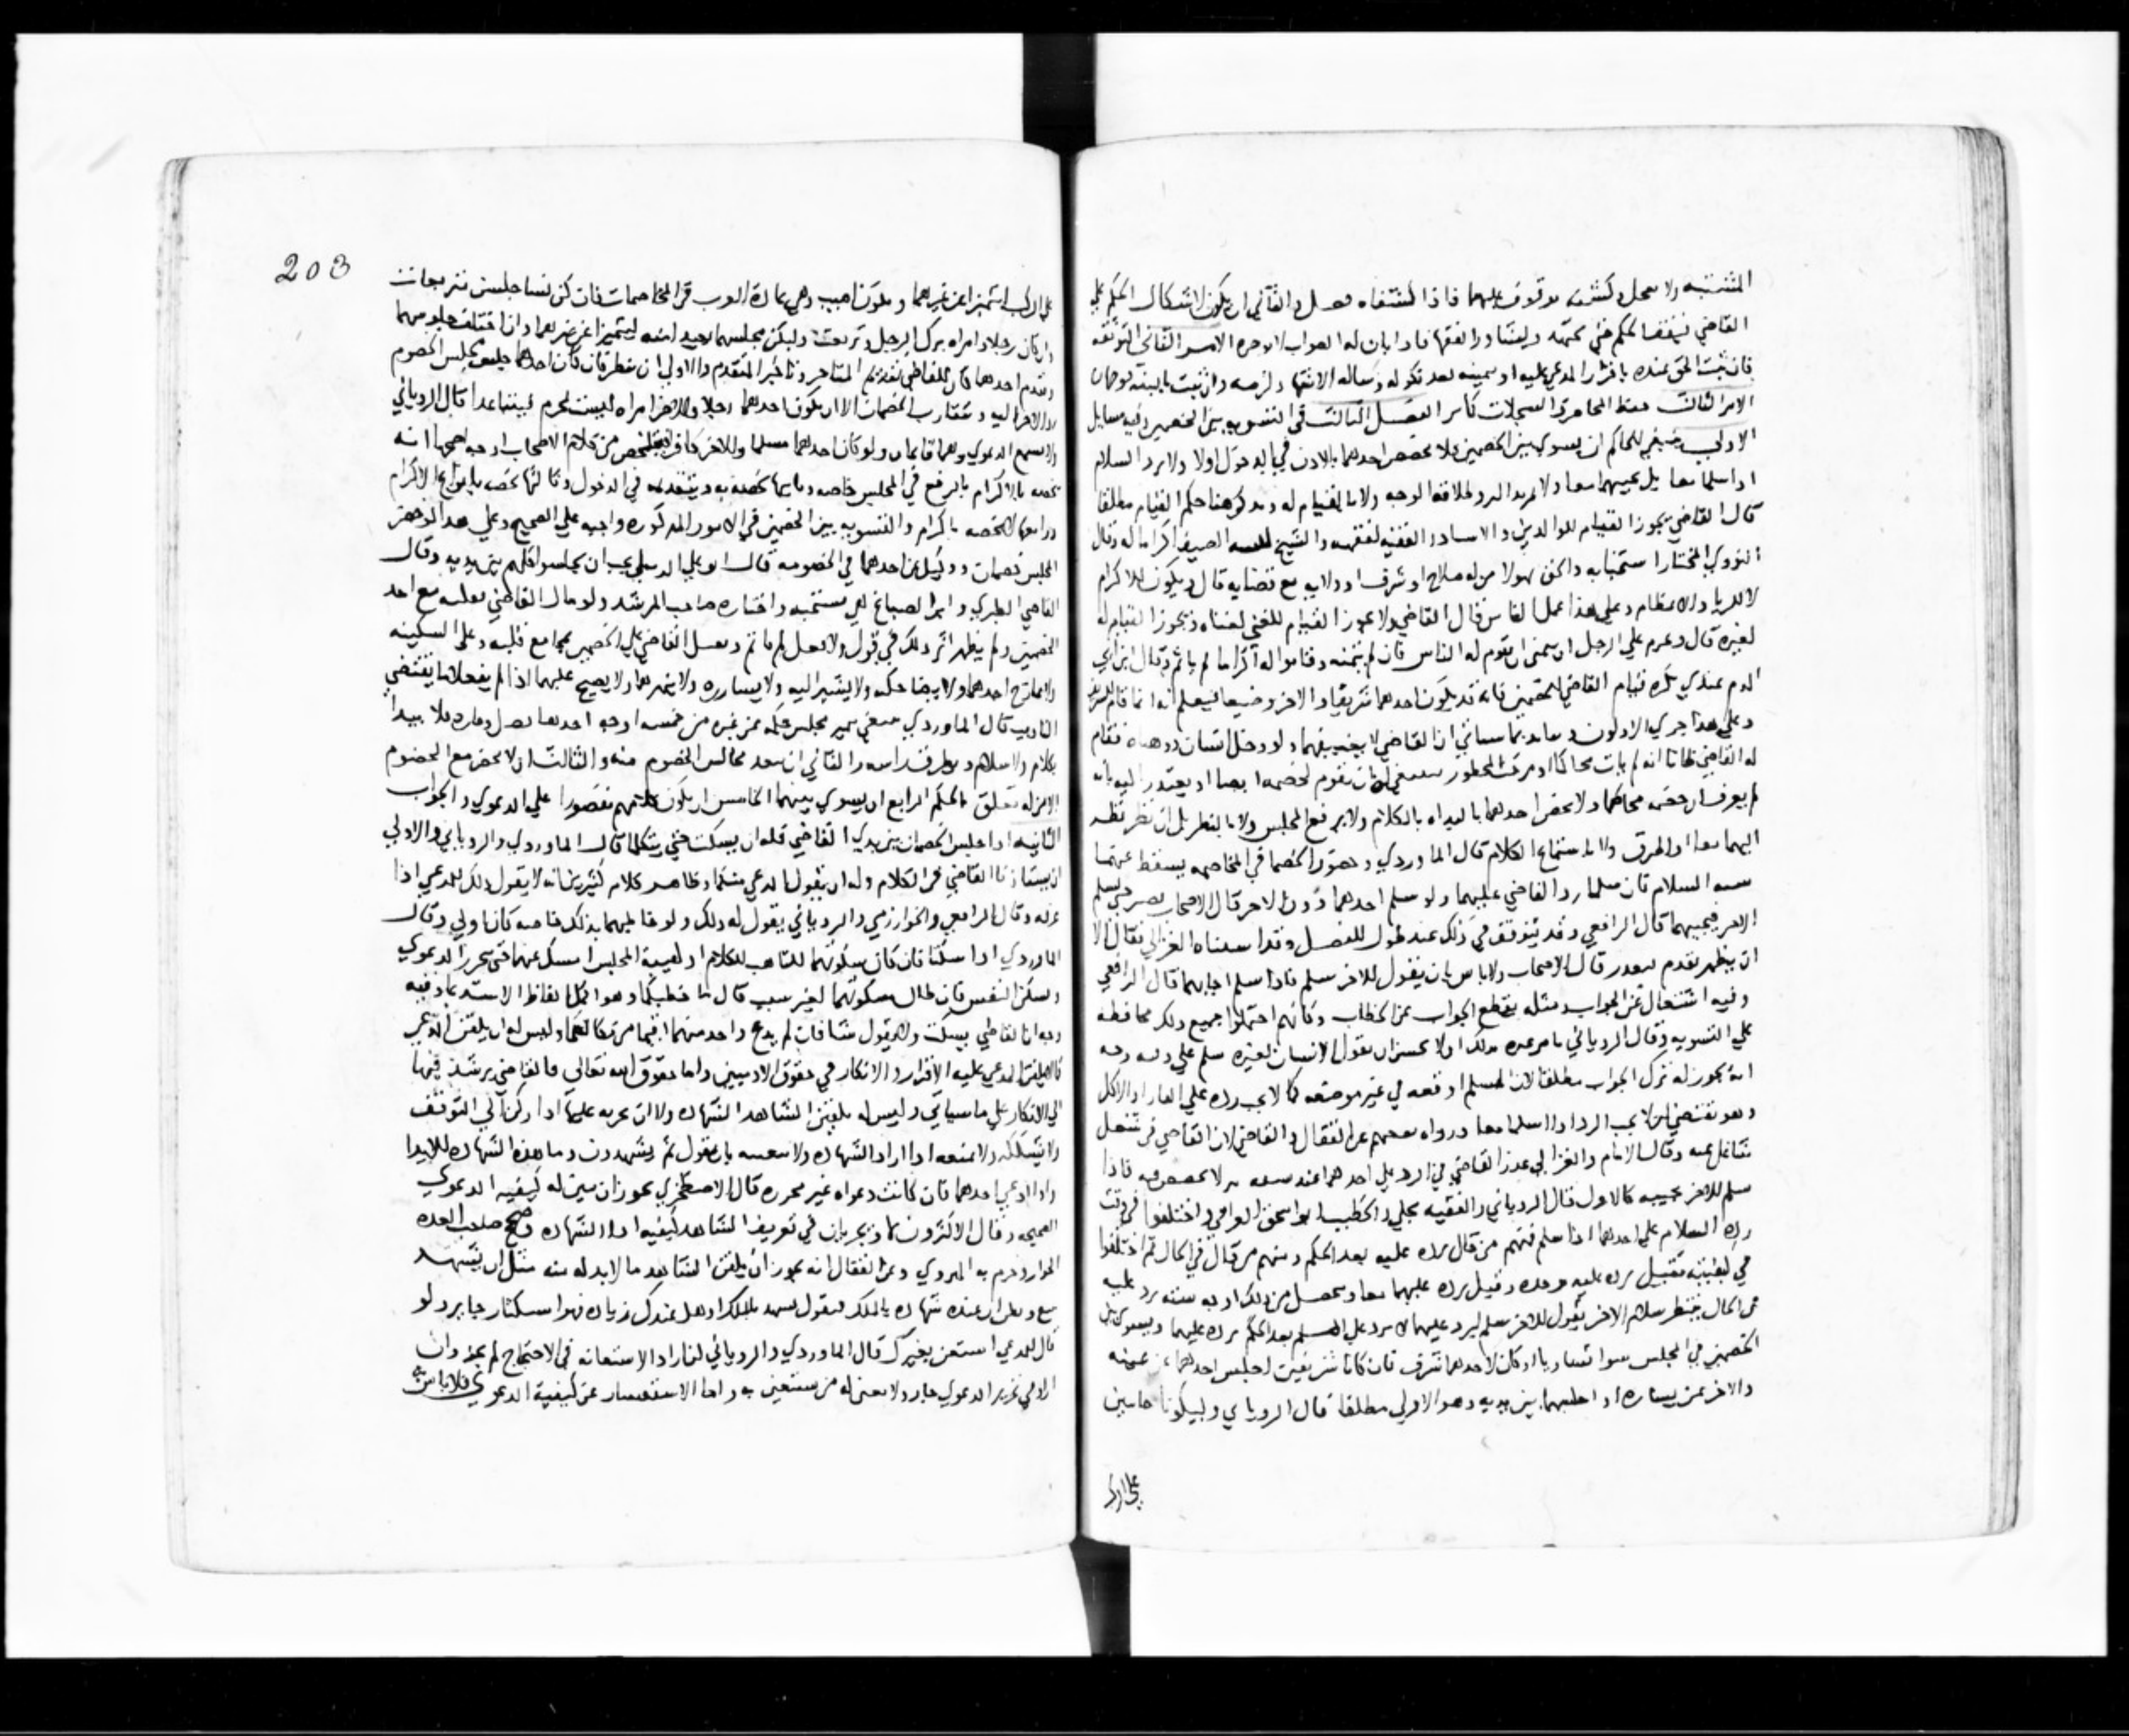 المشتبه ولا سجل وكشفه موقوف عليهما فاذا كشفاه فصل والثاني ان يكون لاشكال الحكم علي
القاضي فيقف الحكم حتي يحققه ويشاور الفقها فاذا بان له الصواب الامر الثاني التوثقة
فان ثبت الحق عنده باقرار المدعي عليه او بيمينه بعد نكوله وساله الاشهاد لزمه وان ثبت بالبينة فوجهان
الامر الثالث حفظ المحاضر والسجلات كما مر الفصل الثالث في التسوية بين الخصمين وفيه مسايل
الاولي ينبغي للحاكم ان يسوي بين الخصمين فلا يخصص احدهما بالاذن في الدخول اولا ولا برد السلام
اذا سلما معا بل يجيبهما معا ولا بمزيد البر وطلاقة الوجه ولا بالقيام له ونذكر هنا حكم القيام مطلقا
قال القاضي يجوز القيام للوالدين والاستاد والفقيه لفقهه والشيخ والضيف اكراما له وقال
النووي المختار استحبابه واكثر هولا من له صلاح او شرف او ولاية مع قضاية قال ويكون للاكرام
لا للريا والاعظام وعلي هذا عمل الناس قال القاضي ولا يجوز القيام للغني لغناه ويجوز القيام له
لغيره قال ويحرم علي الرجل ان يتمني ان يقوم له الناس فان لم يتمنه وقاموا له اكراما لم ياثم وقال ابن ابي
الدم عندي يكره قيام القاضي للخصمين فانه قد يكون احدهما شريفا والاخر وضيعا فيعلم انه انما قام للشريف
وعلي هذا جري الاولون ويايد بما سياتي ان القاضي لا يضيفهما ولو دخل انسان ذو هيئة فقام
له القاضي ظانا انه لم يات محاكما فينبغي له ان يقوم لخصمه ايضا او يعتذر اليه بانه
لم يعرف ان خصمه محاكما ولا يخص احدهما بالبداه بالكلام ولا برفع المجلس ولا بالنظر بل ان نظر نظر
اليهما معا او اطرق ولا باستماع الكلام قال الماوردي وحضور الخصما في المخاصمه يسقط عنهما
سنة السلام فان سلما رد القاضي عليهما ولو سلم احدهما دون الاخر قال الاصحاب يصبر حتي يسلم
الاخر فيجيبهما قال الرافعي وقد يتوقف في ذلك عند طول الفصل وقد استثناه الغزالي فقال الا
ان يظهر تقدم بعذر قال الاصحاب ولا باس بان يقول للاخر سلم فاذا سلم اجابهما قال الرافعي
وفيه اشتغال عن الجواب ومثله يقطع الجواب عن الخطاب وكانهم احتملوا جميع ذلك محافظة
علي التسوية وقال الروياني ولا يحسن ان يقول الانسان لغيره سلم علي وفيه وجه
انه يجوز له ترك الجواب مطلقا لان المسلم اوقعه في غير موضعه كما لا يجب رده علي العاري والاكل
وهو يقتضي ان لا يجب الرد اذا سلما معا ورواه بعضهم عن القفال والقاضي لان القاضي في شغل
شاغل عنه وقال الامام والغزالي
سلم للاخر يجيبه كالاول قال الروياني والفقيه مجلي والخطيب ابو اسحق العراقي واختلفوا في وقت
رده السلام علي احدهما اذا سلم فمنهم من قال يرده عليه بعد الحكم ومنهم من قال في الحال ثم اختلفوا
في كيفيته فقيل يرده عليه وحده وقيل يرده عليهما معا ويحصل من ذلك اوجه ستة يرد عليه
في الحال ينتظر سلام الاخر يقول للاخر سلم ليرد عليهما لا يرد علي المسلم بعد الحكم يرده عليهما ويسوي بين
الخصمين في المجلس سوا تساويا او كان لاحدهما شرف فان كانا شريفين اجلس احدهما عن يمينه
والاخر عن يساره او اجلسهما بين يديه وهو الاولي مطلقا قال الروياني وليكونا جاثيين
علي الركب
203
علي الركب ليتميزا عن غيرهما ويكون اهيب وهي عادة العرب في المخاصمات فان كن نسا جلسن متربعات
وان كان رجلا وامراه برك الرجل وتربعت وليكن مجلسهما بعيدا منه ليتميزا عن غيرهما وان اختلف جلوسهما
وتقدم احدهما كان للقاضي تقديم المتاخر وتاخير المتقدم والاولي ان ينظر فان كان احدهما جلس مجلس الخصوم
رد الاخر اليه ويتقارب الخصمان الا ان يكون احدهما رجلا والاخر امراه ليست محرم فيتباعدا قال الروياني
ولا يسمع الدعوي وهما قايمان ولو كان احدهما مسلما والاخر كافرا فيتلخص من كلام الاصحاب اوجه اصحها انه
يخصه بالاكرام بالرفع في المجلس خاصه وثانيها يخصه به وبتقديمه في الدخول وثالثها يخصه بانواع الاكرام
ورابعها لا يخصه باكرام والتسوية بين الخصمين في الامور المذكوره واجبه علي الصحيح وعلي هذا لو حضر
المجلس خصمان ووكيل عن احدهما في الخصومه قال ابو علي الدبيلي يجب ان يجلسوا كلهم بين يديه وقال
القاضي الطبري وابن الصباغ هي مستحبه واختاره صاحب المرشد ولو مال القاضي بقلبه مع احد
الخصمين ولم يظهر اثر ذلك في قول ولا فعل لم ياثم ويقبل القاضي علي الخصمين بمجامع قلبه وعليه السكينه
ولا يمازح احدهما ولا يضاحكه ولا يشير اليه ولا يسارره ولا ينهرهما ولا يصيح عليهما اذا لم يفعلا ما يقتضي
التاديب قال الماوردي ينبغي تميز مجلس حكمه عن غيره من خمسه اوجه احدها فلا يبدا
بكلام ولا سلام ويطرق براسه والثاني ان يبعد مجالس الخصوم منه والثالث ان لا يحضر مع الخصوم
الا من له تعلق بالحكم الرابع ان يسوي بينهما الخامس ان يكون كلامهم مقصورا علي الدعوي والجواب
الثانيه اذا جلس الخصمان بين يدي القاضي فله ان يسكت حتي يتكلما قال الماوردي والروياني والاولي
ان يستاذنا القاضي في الكلام وله ان يقول المدعي منكما وظاهر كلام كثيرين انه لا يقول ذلك للمدعي اذا
عرفه وقال الرافعي والخوارزمي والروياني يقول له ذلك ولو خاطبهما بذلك خاصه كان اولي وقال
الماوردي اذا سكتا فان كان سكوتهما للتاهب للكلام او لهيبة المجلس امسك عنهما حتي تتحرر الدعوي
وتسكن النفس فان طال سكوتهما لغير سبب قال ما خطبكما وهو اكمل الفاظ الاستدعا وفيه
وجه ان القاضي يسكت ولا يقول شيا فان لم يدع واحد منهما اقيما من مكانهما وليس له ان يلقن المدعي
كما لا يلقن المدعي عليه الاقرار والانكار في حقوق الادميين واما حقوق الله تعالي فالقاضي يرشد فيها
الي الانكار علي ما سياتي وليس له تلقين الشاهد الشهادة ولا ان يجريه عليها اذا ركن الي التوقف
ولا يشككه ولا يمنعه اذا اراد الشهادة ولا بان يقول ثم يشهدون وما هذه الشهاده للابدا
واذا ادعي احدهما فان كانت دعواه غير محرره قال الاصطخري يجوز ان يبين له كيفيه الدعوي
الصحيحه وقال الاكثرون لا ويجريان في تعريف الشاهد كيفيه ادا الشهاده وصحح صاحب العده
الجواز وجزم به الهروي وعن القفال انه يجوز ان يلقن الشاهد ما لابد له منه مثل ان يشهد
ببيع ويظن ان عنده شهاده بالملك فيقول تشهد بالملك او هل عندك زياده فهو استكثار جايز ولو
قال للمدعي استعن بغيرك قال الماوردي والروياني ان اراد الاستعانه في الاحتجاج لم يجز وان
اراد في تحرير الدعوي جاز ولا يعين له من يستعين به واما الاستفسار عن كيفية الدعوي فلا باس به